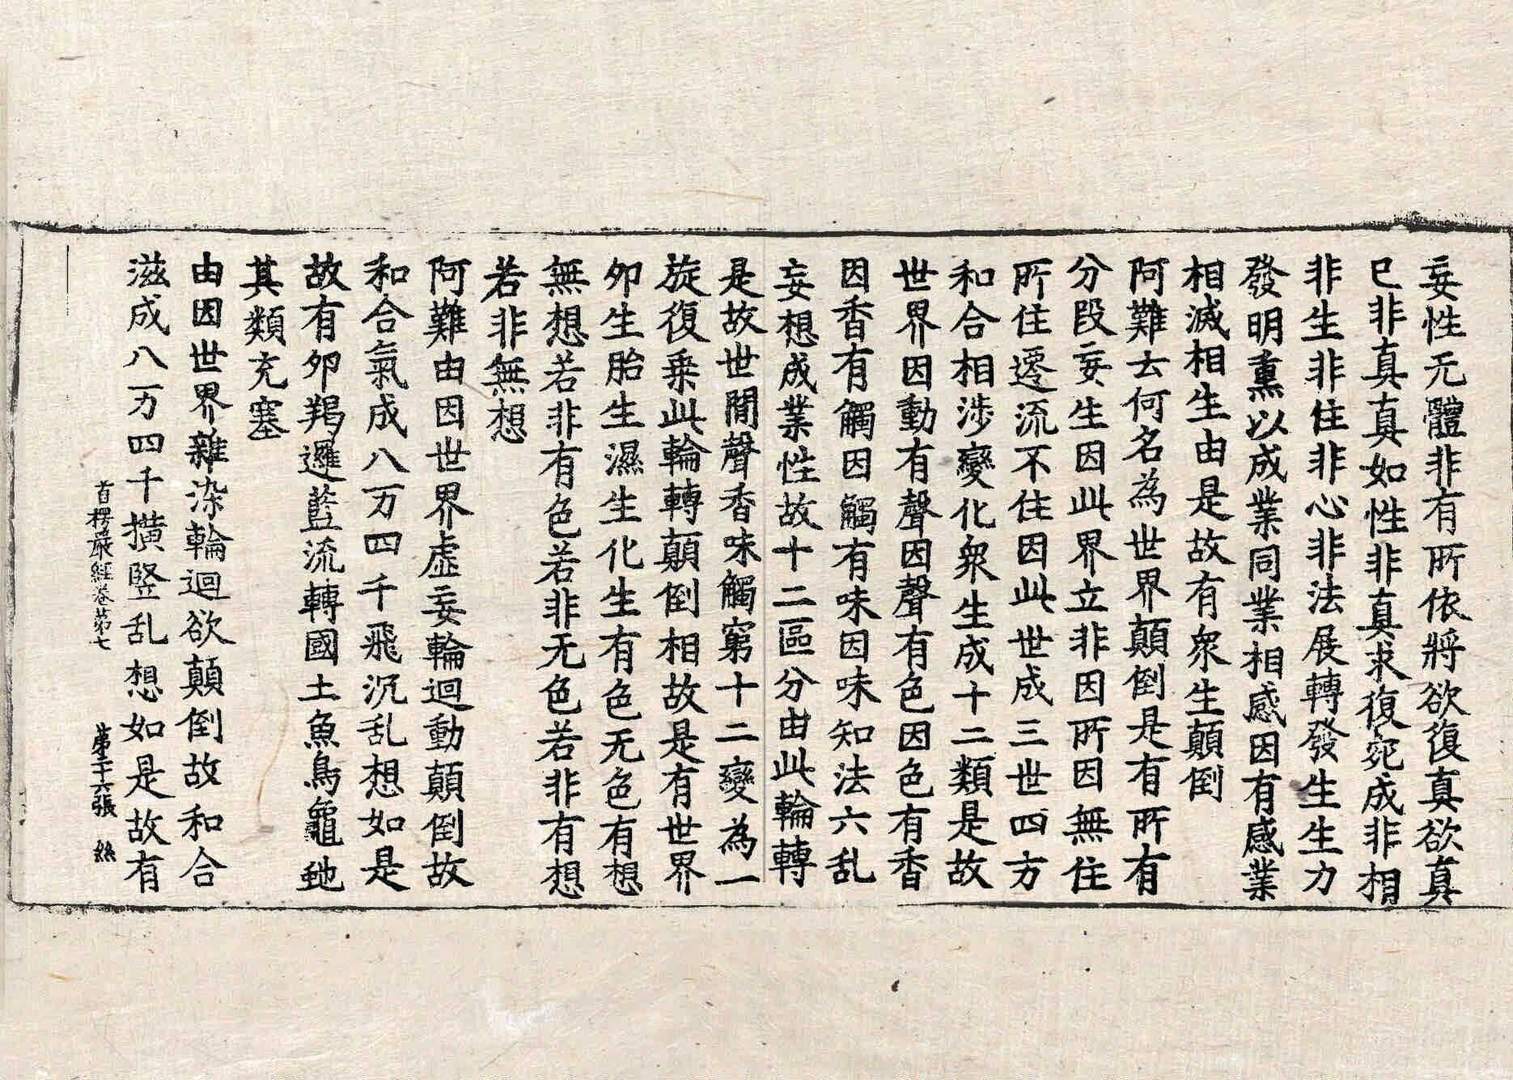 妄性无體非有所依將欲復真欲真
已非真真如性非真求復宛成非相
非生非住非心非法展轉發生生力
發明熏以成業同業相感因有感業
相滅相生由是故有衆生顛倒
阿難去何名為世界顛倒是有所有
分段妄生因此界立非因所因無住
所住遷流不住因此世成三世四方
和合相涉變化衆生成十二類是故
世界因動有聲因聲有色因色有香
因香有觸因觸有味因味知法六乱
妄想成業性故十二區分由此輪轉
是故世間聲香味觸窮十二變為一
旋復乗此輪轉顛倒相故是有世界
卵生胎生濕生化生有色无色有想
無想若非有色若非无色若非有想
若非無想
阿難由因世界虛妄輪迴動顛倒故
和合氣成八万四千飛沉乱想如是
故有卵羯邏藍流轉國土魚鳥龜虵
其類充塞
由因世界雜染輪迴欲顛倒故和合
滋成八万四千撗竪乱想如是故有
首楞嚴經卷第七 第二十六張 絲